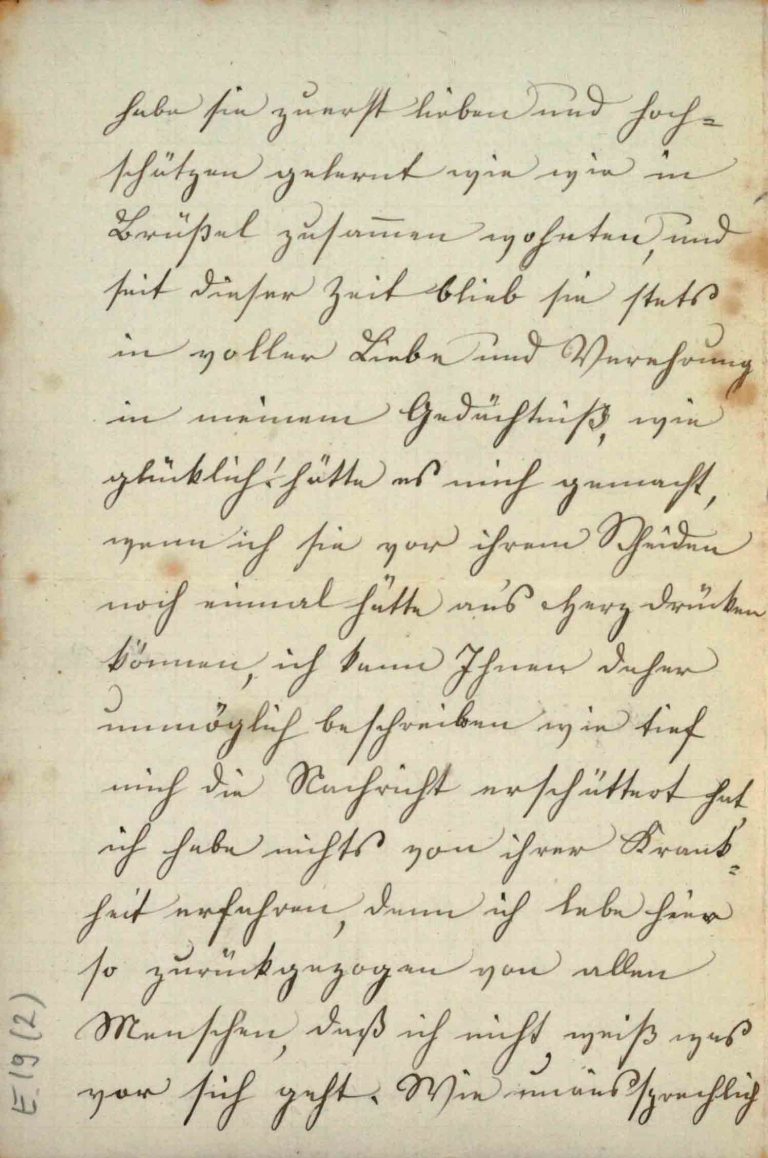 habe sie zuerst lieben und hoch=
schätzen gelernt wie wir in
Brüßel zusammen wohnten, und
seit dieser Zeit blieb sie stets
in voller Liebe und Verehrung
in meinem Gedächtniß, wie
glücklich! hätte es mich gemacht,
wenn ich sie vor ihrem Scheiden
noch einmal hätte an's Herz drücken
können, ich kann Ihnen daher
unmöglich beschreiben wie tief
mich die Nachricht erschüttert hat,
ich habe nichts von ihrer Krank=
heit erfahren, denn ich lebe hier
so zurückgezogen von allen
Menschen, daß ich nicht weiß was
vor sich geht. Wie unaussprechlich
E 19 (2)